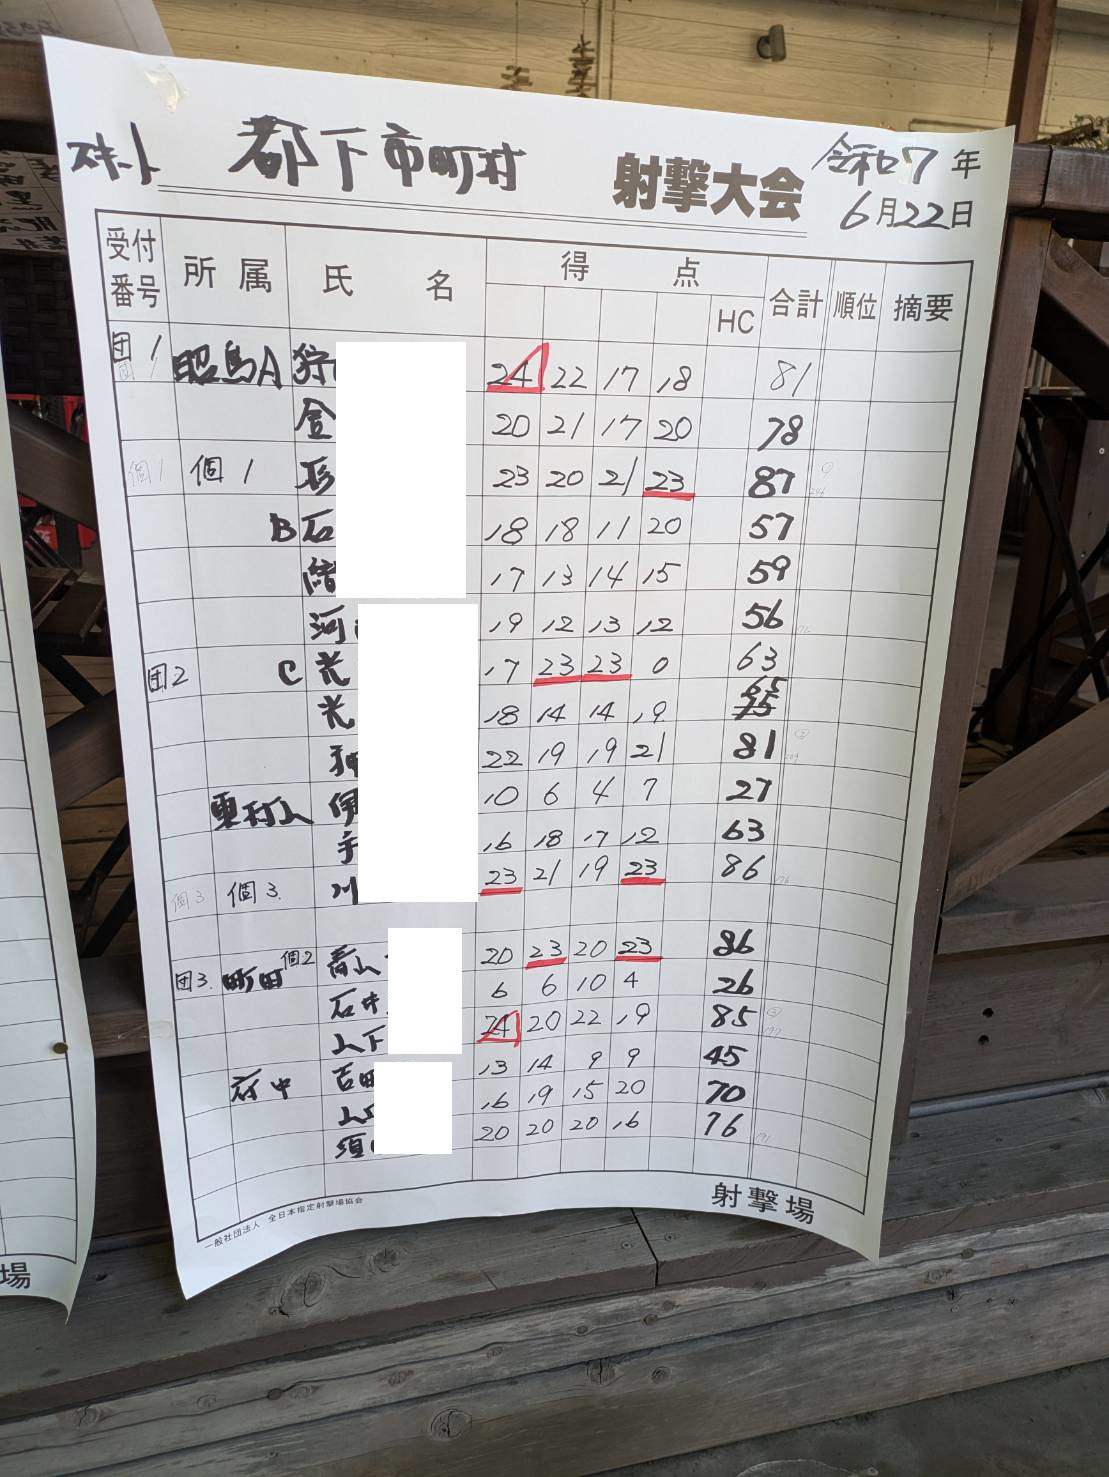 スキート 都下市町村 射撃大会 令和7年
6月22日
受付番号 所属 氏名 得点 HC 合計 順位 摘要
団1 昭島A 狩 24 22 17 18 81
金 20 21 17 20 78
個1 個1 杉 23 20 21 23 87
B 石 18 18 11 20 57
緒 17 13 14 15 59
河 19 12 13 12 56
団2 C 光 17 23 23 0 63
光 18 14 14 19 65
22 19 19 21 81
東村山 伊 10 6 4 7 27
手 16 18 17 12 63
個3 個3. 川 23 21 19 23 86
団3. 町田 個2 青山 20 23 20 23 86
石井 6 6 10 4 26
山下 24 20 22 19 85
府中 吉田 13 14 9 9 45
山 16 19 15 20 70
須 20 20 20 16 76
一般社団法人 全日本指定射撃場協会 射撃場
場